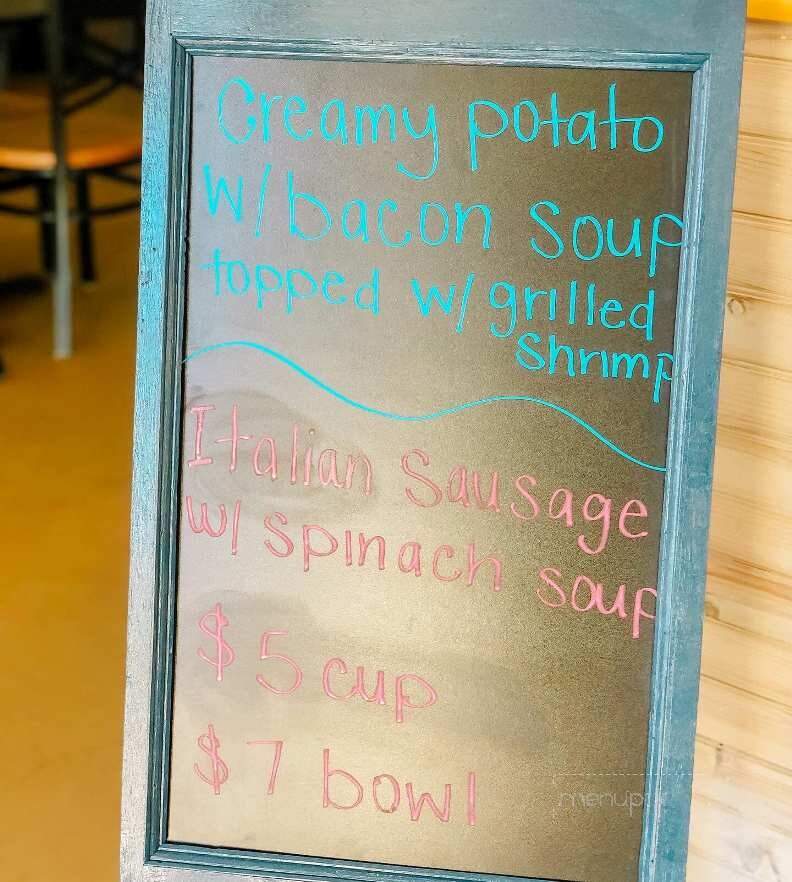 Creamy potato
w/ bacon soup
topped w/ grilled
shrimp
Italian Sausage
w/ spinach soup
$5 cup
$7 bowl